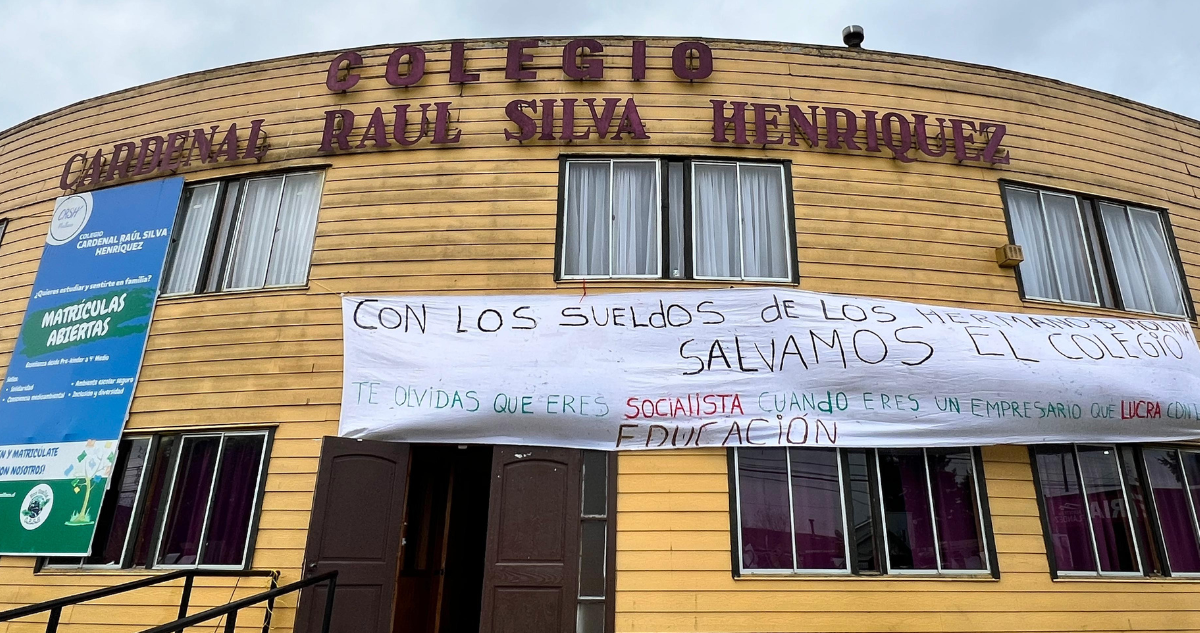 COLEGIO
CARDENAL RAUL SILVA HENRIQUEZ
CRSH
COLEGIO
CARDENAL RAÚL SILVA
HENRÍQUEZ
¿Quieres estudiar y sentirte en familia?
MATRÍCULAS
ABIERTAS
Enseñanza desde Pre-kinder a 4° Medio
Sellos:
• Solidaridad
• Consciencia medioambiental
• Ambiente escolar seguro
• Inclusión y diversidad
N Y MATRICULATE
ON NOSOTROS!
CON LOS SUELDOS DE LOS HERMANOS MOLINA
SALVAMOS EL COLEGIO
TE OLVIDAS QUE ERES SOCIALISTA CUANDO ERES UN EMPRESARIO QUE LUCRA CON
EDUCACIÓN